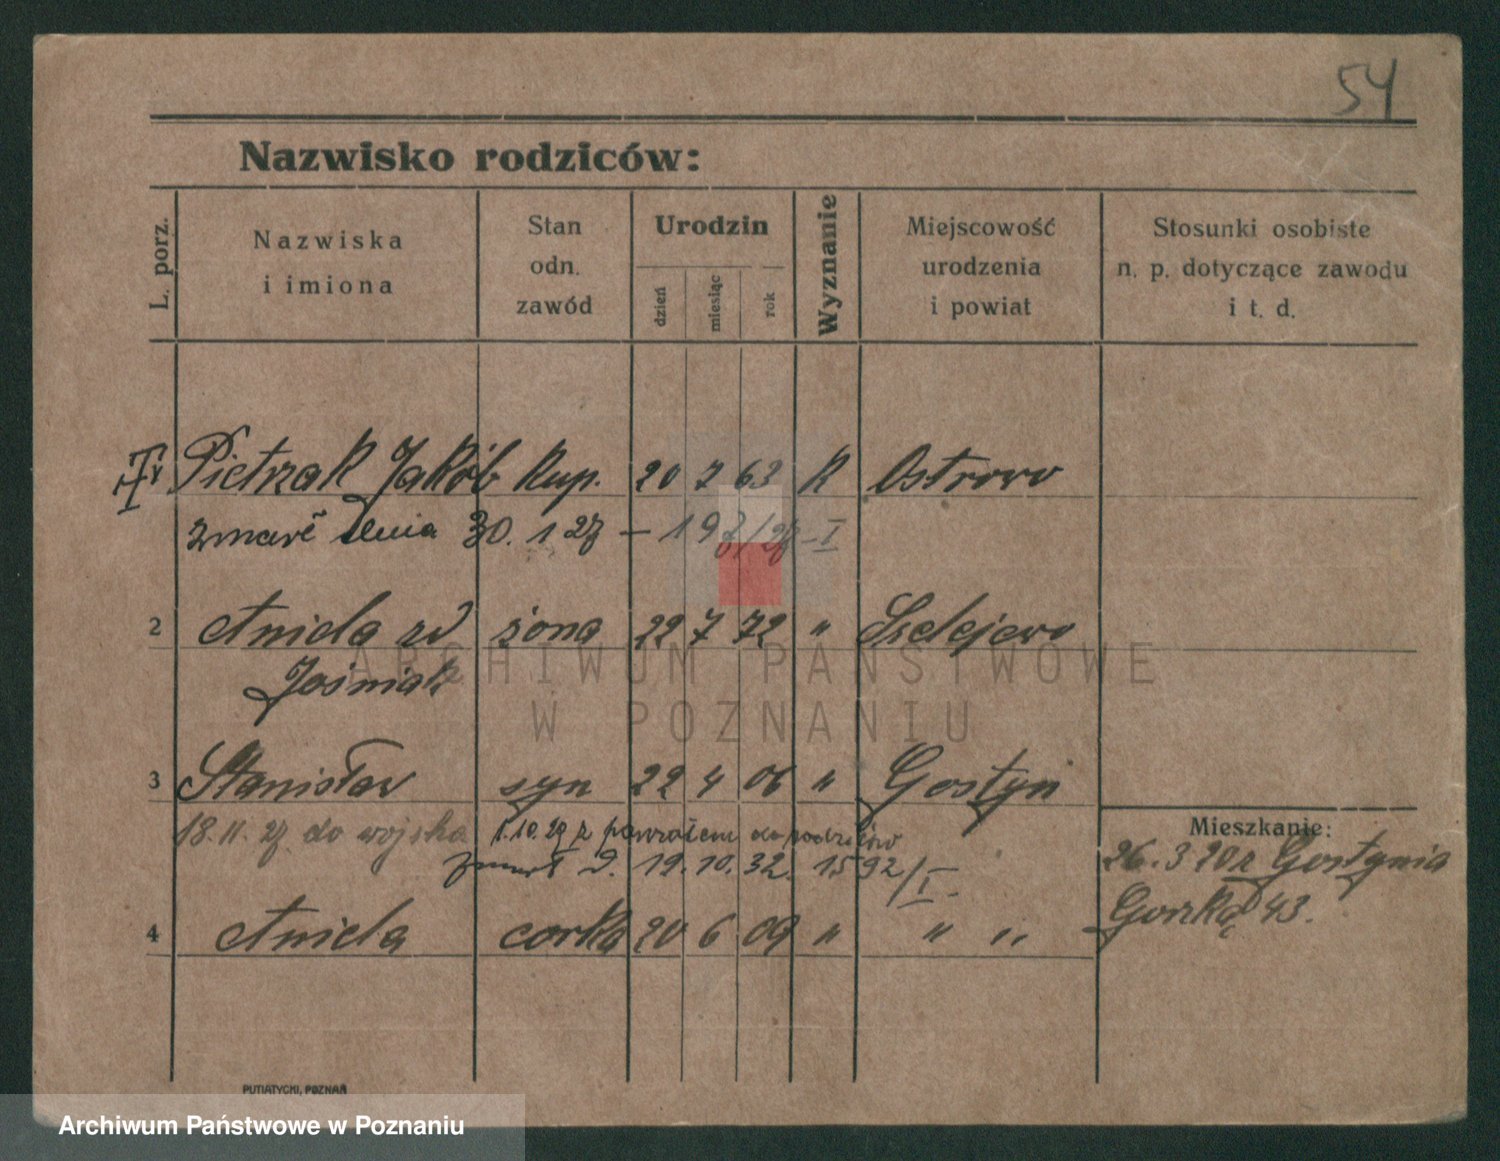 54
Nazwisko rodziców:
L. porz.
Nazwiska
i imiona
Stan
odn.
zawód
Urodzin
dzień
miesiąc
rok
Wyznanie
Miejscowość
urodzenia
i powiat
Stosunki osobiste
n. p. dotyczące zawodu
i t. d.
Pietrzak Jakób Kup. 20 7 63 K Ostrowo
zmarł dnia 30. 1 27 – 197/27 – I
2 Aniela zd żona 22 7 72 " Szelejewo
Jośmiak
3 Stanisław syn 22 4 06 " Gostyń
18.11.27 do wojska 1.10.29 z powrotem do rodziców
zmarł d. 19.10.32. 1592/I
4 Aniela corka 20 6 09 " " "
Mieszkanie:
26. 3 20 z Gostynia
43.
PUTIATYCKI, POZNAŃ
ARCHIWUM PAŃSTWOWE
W POZNANIU
Archiwum Państwowe w Poznaniu